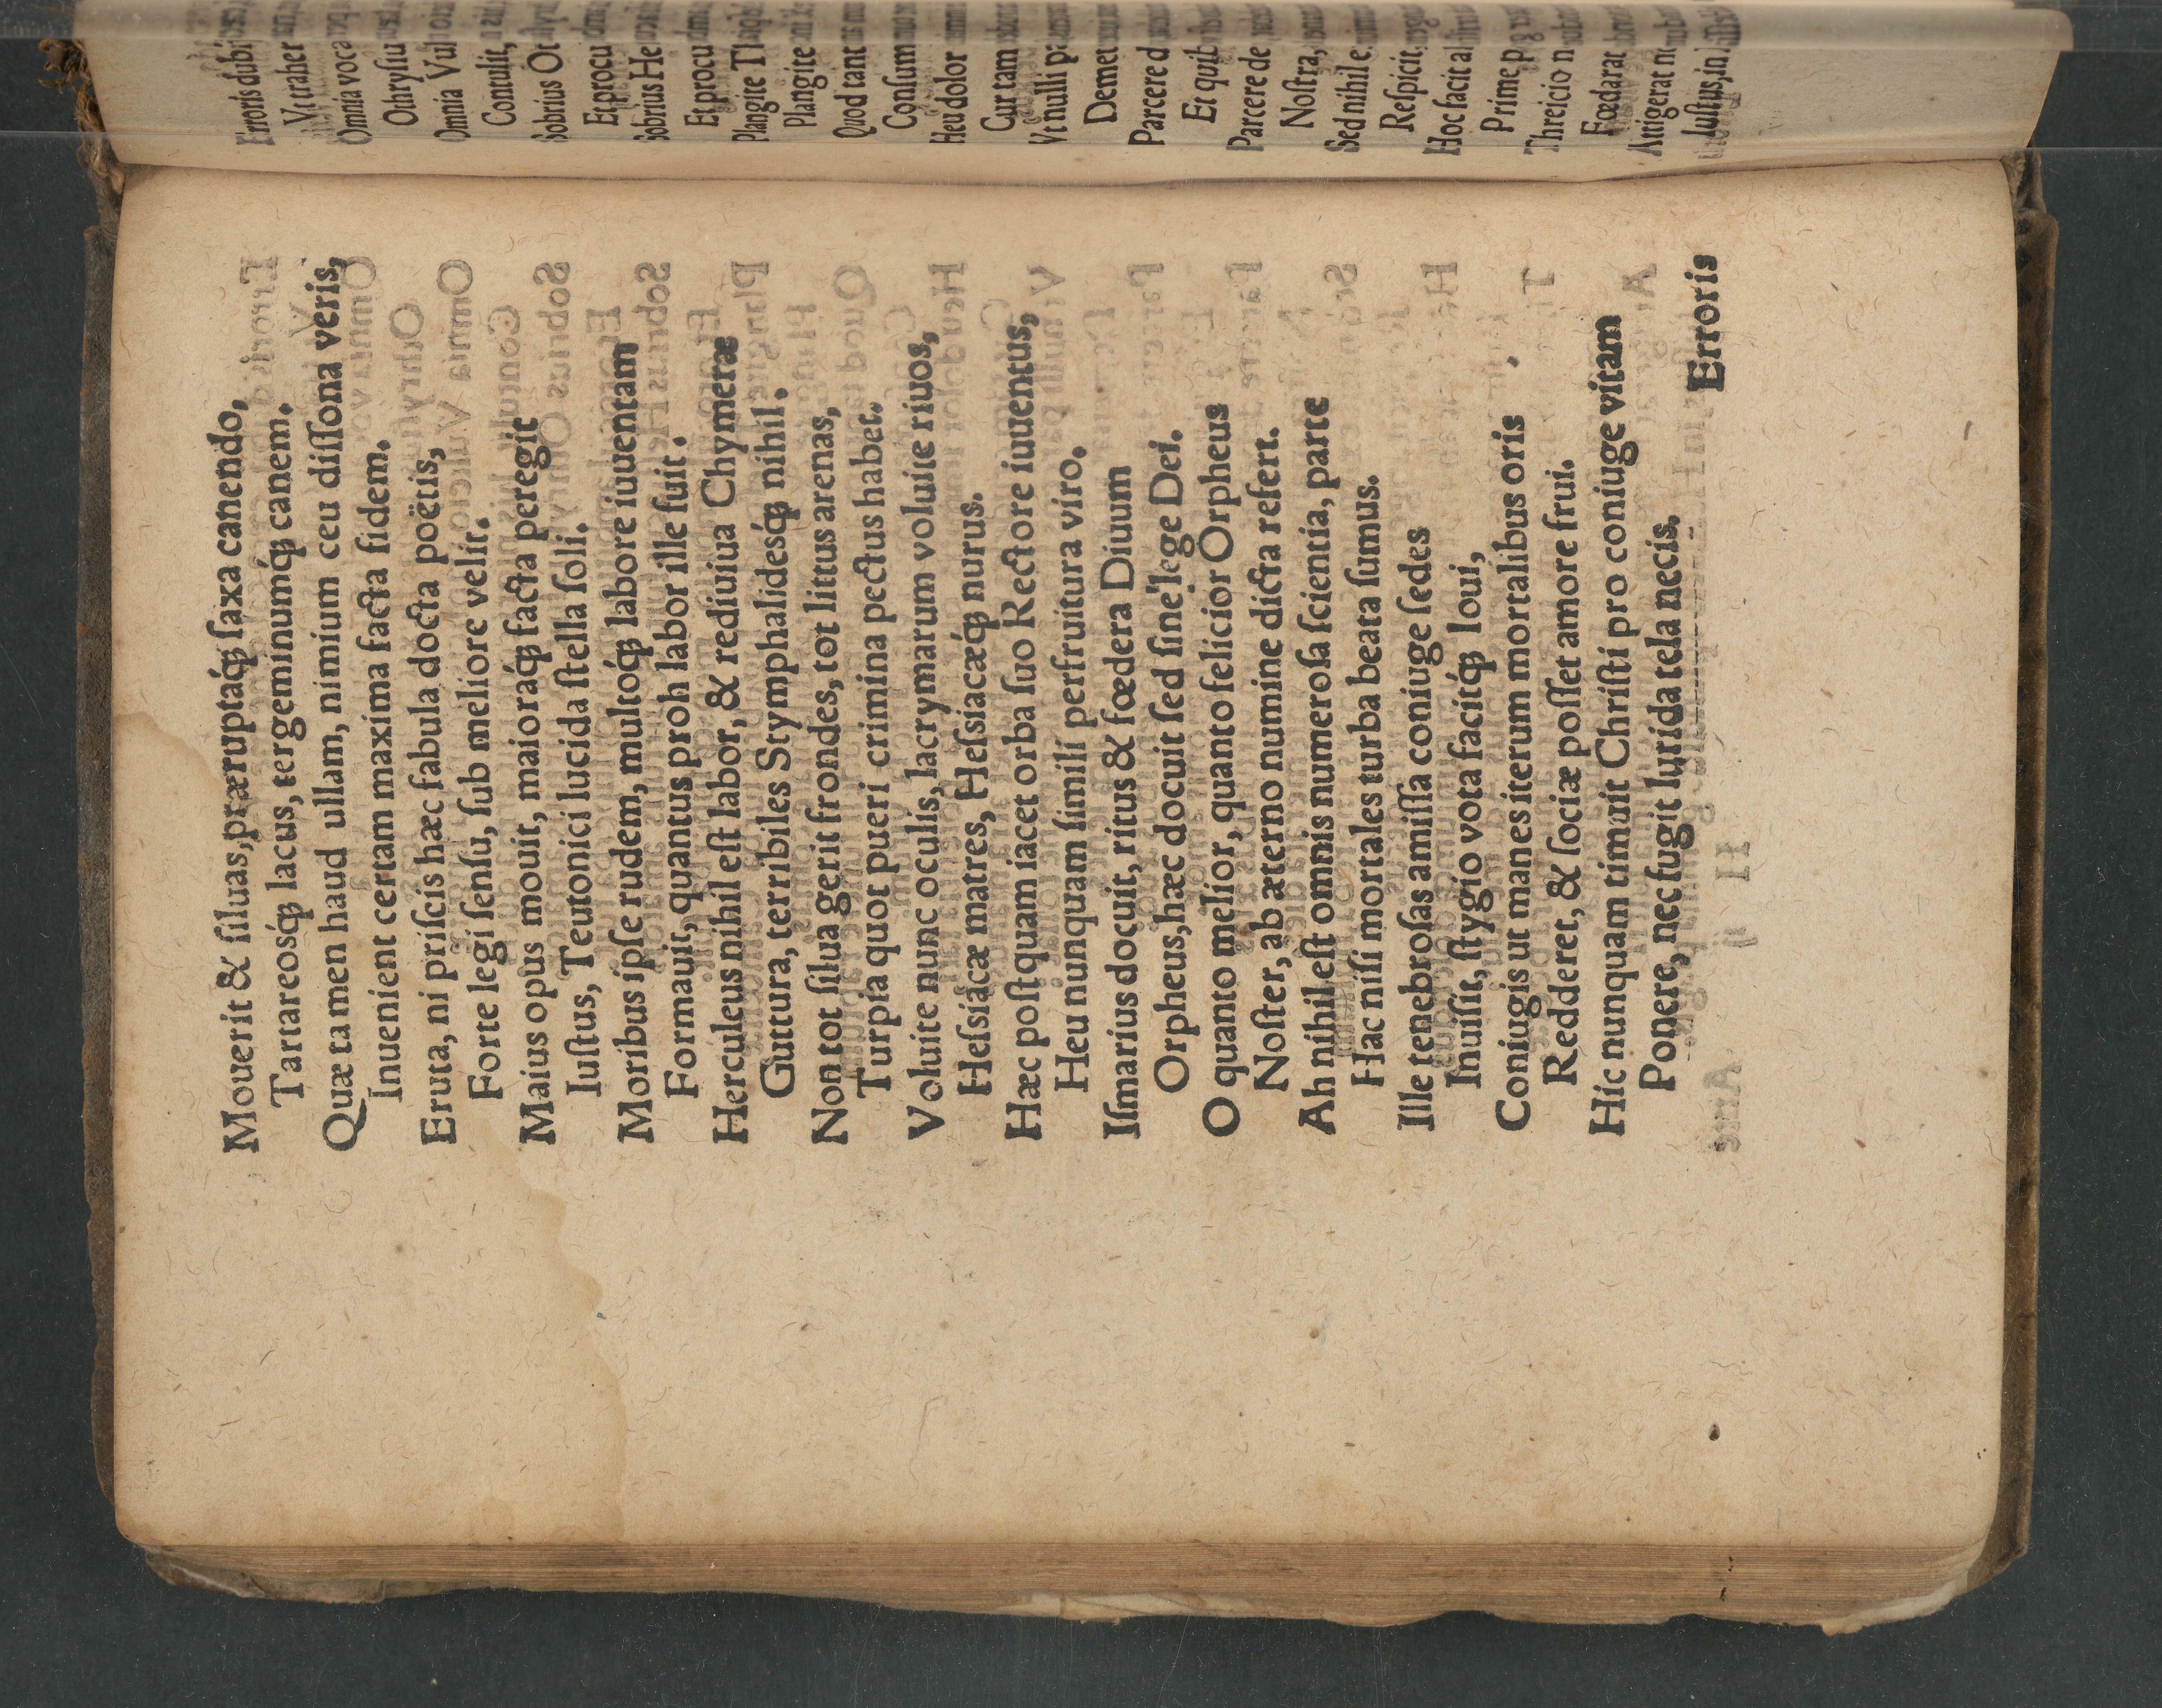 Mouerit & ſiluas, præruptaq́ꝫ ſaxa canendo,
Tartareosq́ꝫ lacus, tergeminumq́ꝫ canem.
Quæ tamen haud ullam, nimium ceu diſſona veris,
Inuenient certam maxima facta fidem.
Eruta, ni priſcis hæc fabula docta poëtis,
Forte legi ſenſu, ſub meliore velit.
Maius opus mouit, maioraq́ꝫ facta peregit
Iuſtus, Teutonici lucida ſtella ſoli.
Moribus ipſe rudem, multoq́ꝫ labore iuuentam
Formauit, quantus proh labor ille fuit.
Herculeus nihil eſt labor, & rediuiua Chymeræ
Guttura, terribiles Stymphalidesq́ꝫ nihil.
Non tot ſilua gerit frondes, tot littus arenas,
Turpia quot pueri crimina pectus habet.
Voluite nunc oculis, lacrymarum voluite riuos,
Heſsiacæ matres, Heſsiacæq́ꝫ nurus.
Hæc poſtquam iacet orba ſuo Rectore iuuentus,
Heu nunquam ſimili perfruitura viro.
Iſmarius docuit, ritus & fœdera Diuum
Orpheus, hæc docuit ſed ſine lege Dei.
O quanto melior, quanto felicior Orpheus
Noſter, ab æterno numine dicta refert.
Ah nihil eſt omnis numeroſa ſcientia, parte
Hac niſi mortales turba beata ſumus.
Ille tenebroſas amiſſa coniuge ſedes
Inuiſit, ſtygio vota facitq́ꝫ Ioui,
Coniugis ut manes iterum mortalibus oris
Redderet, & ſociæ poſſet amore frui.
Hic nunquam timuit Chriſti pro coniuge vitam
Ponere, nec fugit lurida tela necis.
Erroris
Erroris dubi
Vt traher
Omia voca
Othryſiu
Omnia Vul
Contulit,
Sobrius Ot
Et procu
Sobrius He
Et procu
Plangite Tl
Plangite
Quod tant
Conſum
Heu dolor
Cur tam
Vt nulli pa
Demet
Parcere d
Et quib
Parcere de
Noſtra,
Sed nihil e
Reſpicit
Hoc facit al
Prime p
Threicio n
Fœdarat
Attigerat ni
Iuſtus, in